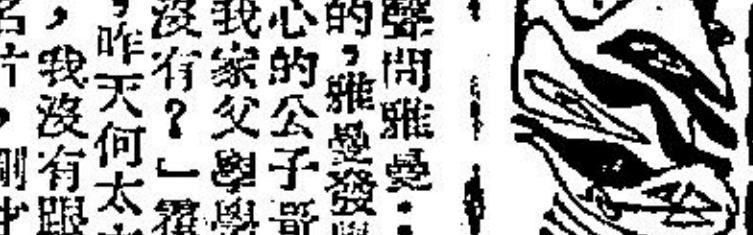 聲問雅曼：
的，雅曼發
心的公子哥
我家父學學
沒有？」霍
，昨天何太
，我沒有跟
名片，剛才